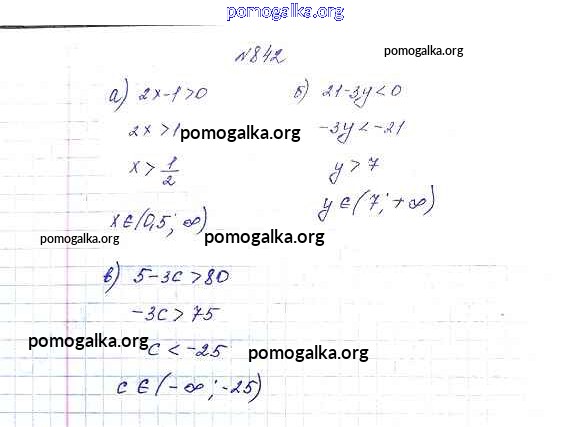 pomogalka.org
№842
pomogalka.org
а) 2x-1>0
2x>1
pomogalka.org
x>1/2
x∈(0,5; ∞)
б) 21-3y<0
-3y<-21
y>7
y∈(7; +∞)
pomogalka.org
pomogalka.org
в) 5-3c>80
-3c>75
pomogalka.org
c<-25
pomogalka.org
c∈(-∞; -25)